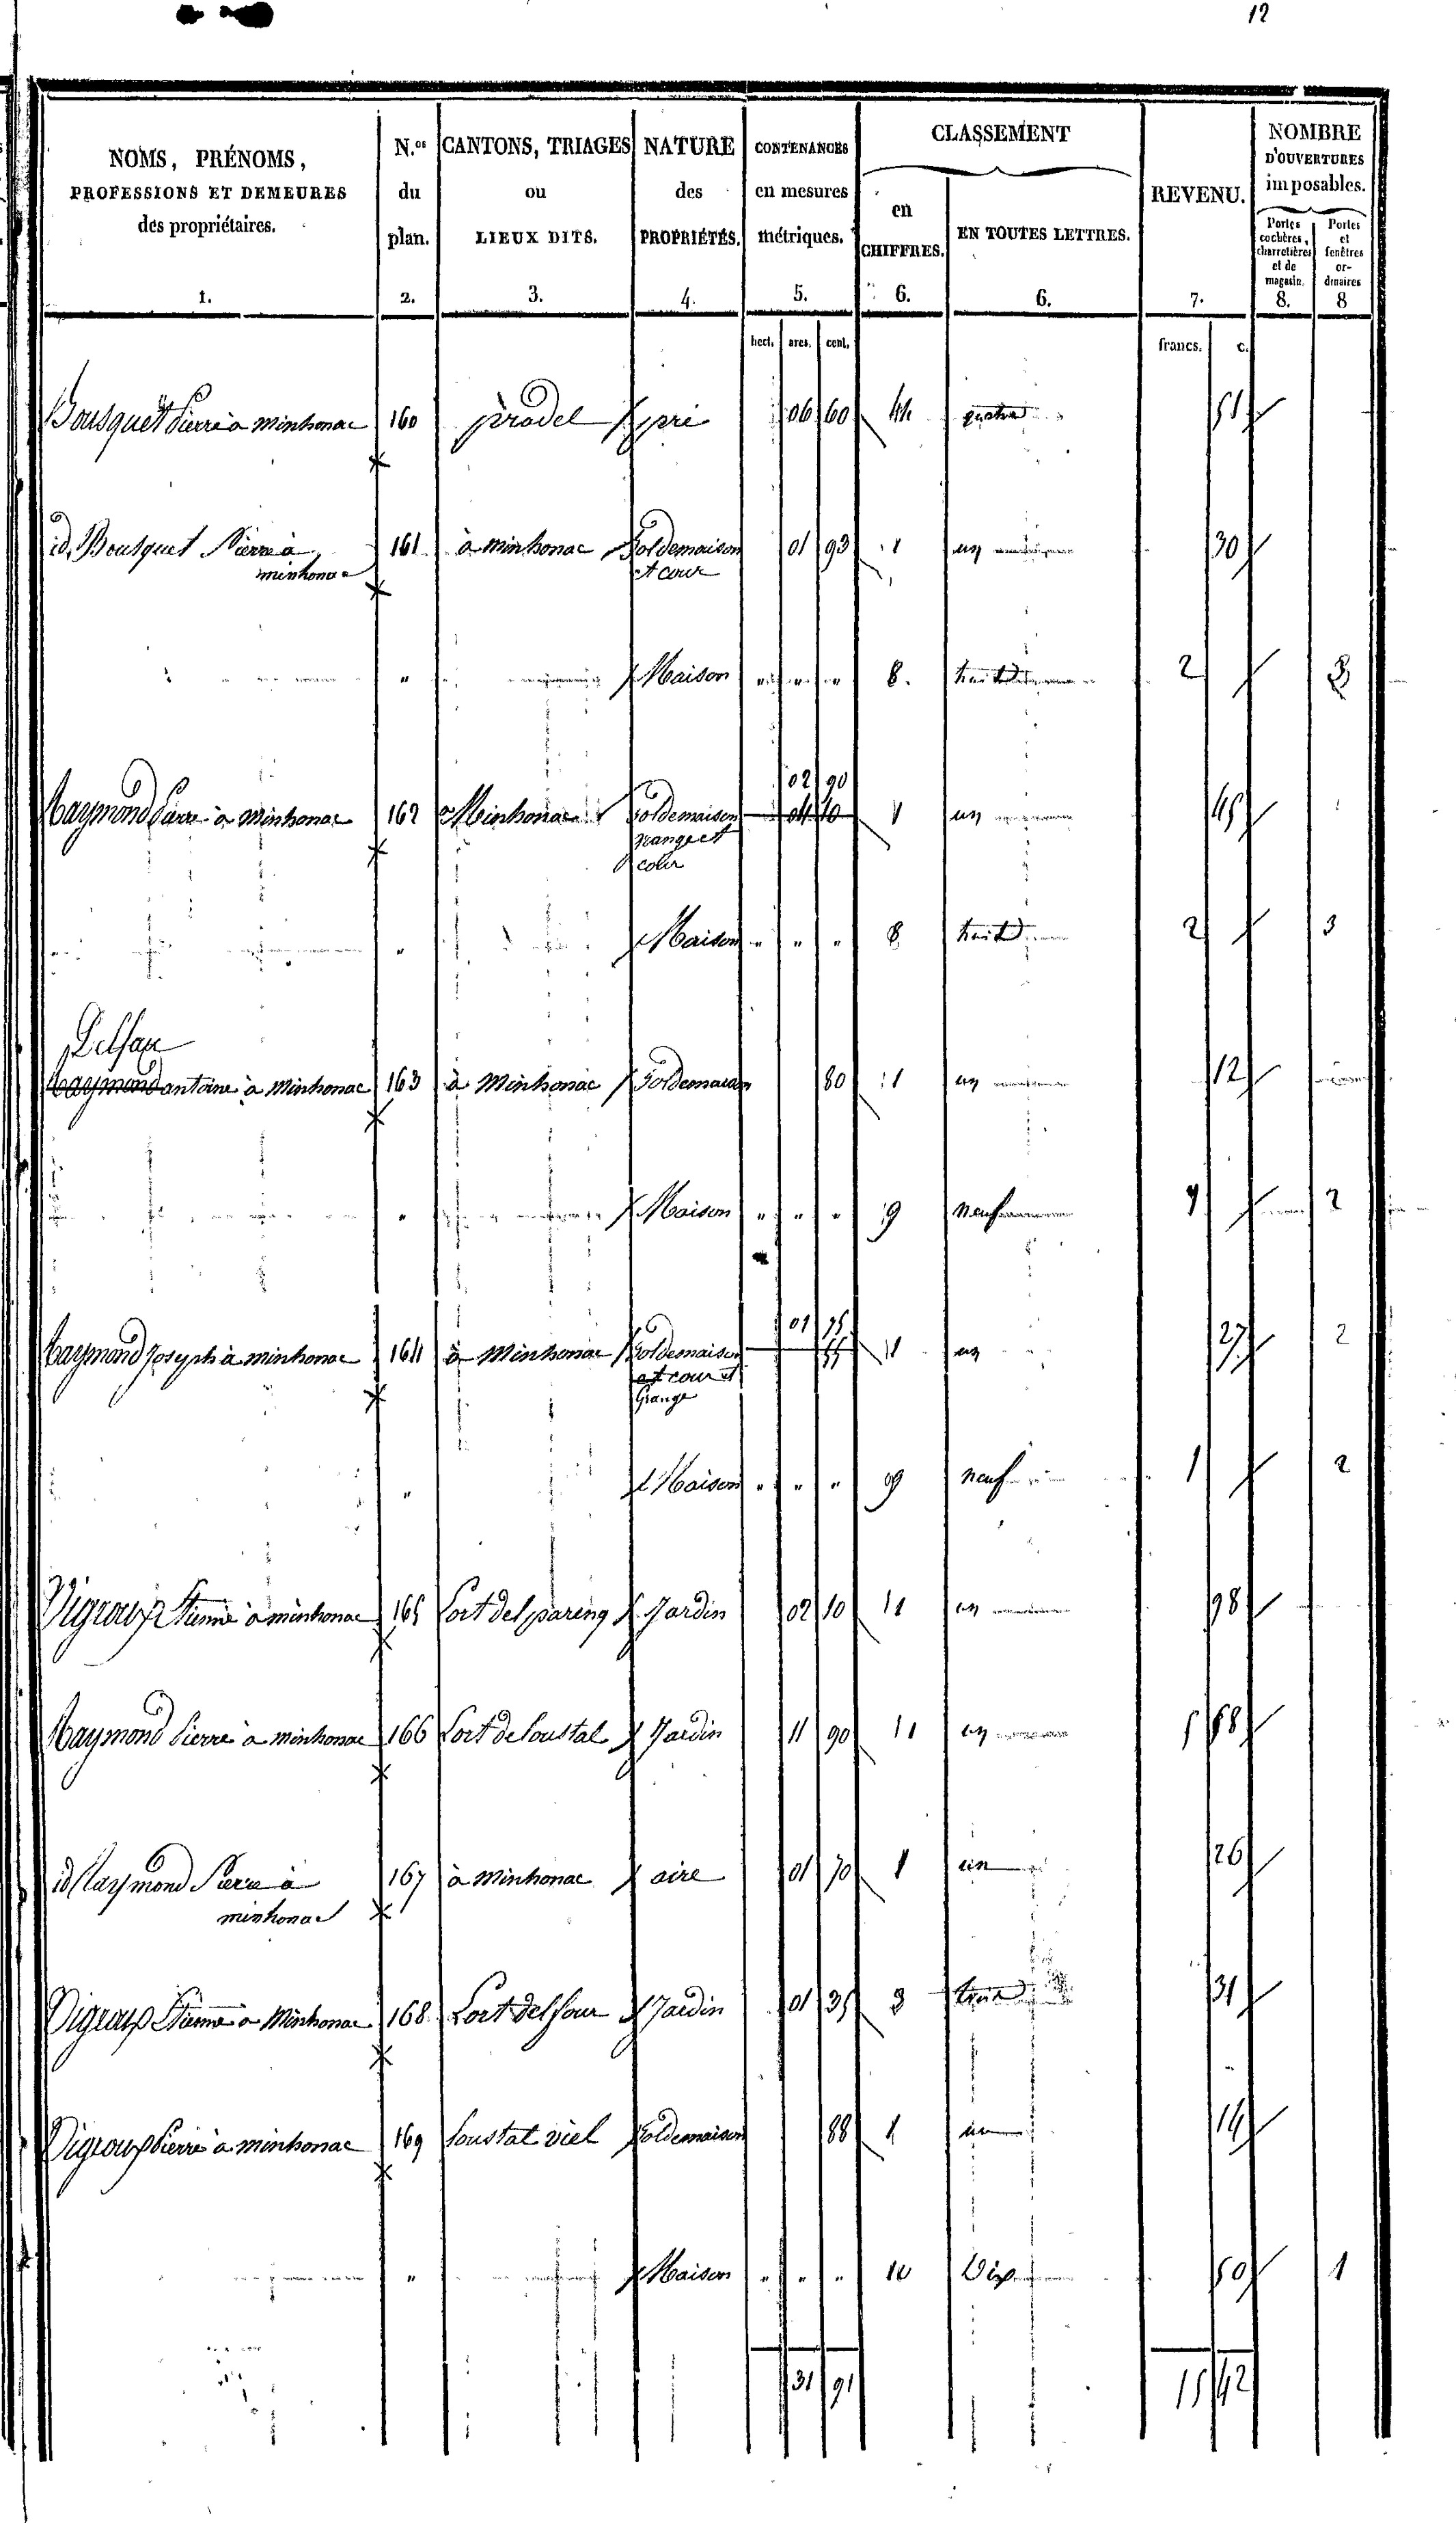 12
NOMS, PRÉNOMS, PROFESSIONS ET DEMEURES des propriétaires. 1.
N.os du plan. 2.
CANTONS, TRIAGES ou LIEUX DITS. 3.
NATURE des PROPRIÉTÉS. 4.
CONTENANCES en mesures métriques. 5.
CLASSEMENT
en CHIFFRES. 6.
EN TOUTES LETTRES. 6.
REVENU. 7.
NOMBRE D'OUVERTURES imposables.
Portes cochères, charretières et de magasin. 8.
Portes et fenêtres ordinaires 8
hect. ares. cent. francs. c.
Bousquet Pierre à minhonac 160 pradel pré 06 60 4 quatre 51
id. Bousquet Pierre à minhonac 161 à minhonac Sol de maison et cour 01 93 1 un 30
" Maison " " " 8. huit 2 3
02 90
Raymond Pierre à minhonac 162 à Minhonac Sol de maison grange et cour 04 10 1 un 45
" Maison " " " 8 huit 2 3
Delfau
Raymond antoine à Minhonac 163 à Minhonac Sol de maison 80 1 un 12
" Maison " " " 9 neuf 1 2
01 75
Raymond Joseph à minhonac 164 à Minhonac Sol de maison et cour et Grange 55 1 un 27 2
" Maison " " " 9 neuf 1 2
Vigroux Etienne à minhonac 165 Lort del pareng Jardin 02 10 1 un 98
Raymond Pierre à minhonac 166 Lort de loustal Jardin 11 90 1 un 5 58
id Raymond Pierre à minhonac 167 à minhonac aire 01 70 1 un 26
Vigroux Etienne à Minhonac 168 Lort del four Jardin 01 35 3 trois 31
Vigroux Pierre à minhonac 169 loustal viel Sol de maison 88 1 un 14
" Maison " " " 10 Dix 50 1
31 91 15 42